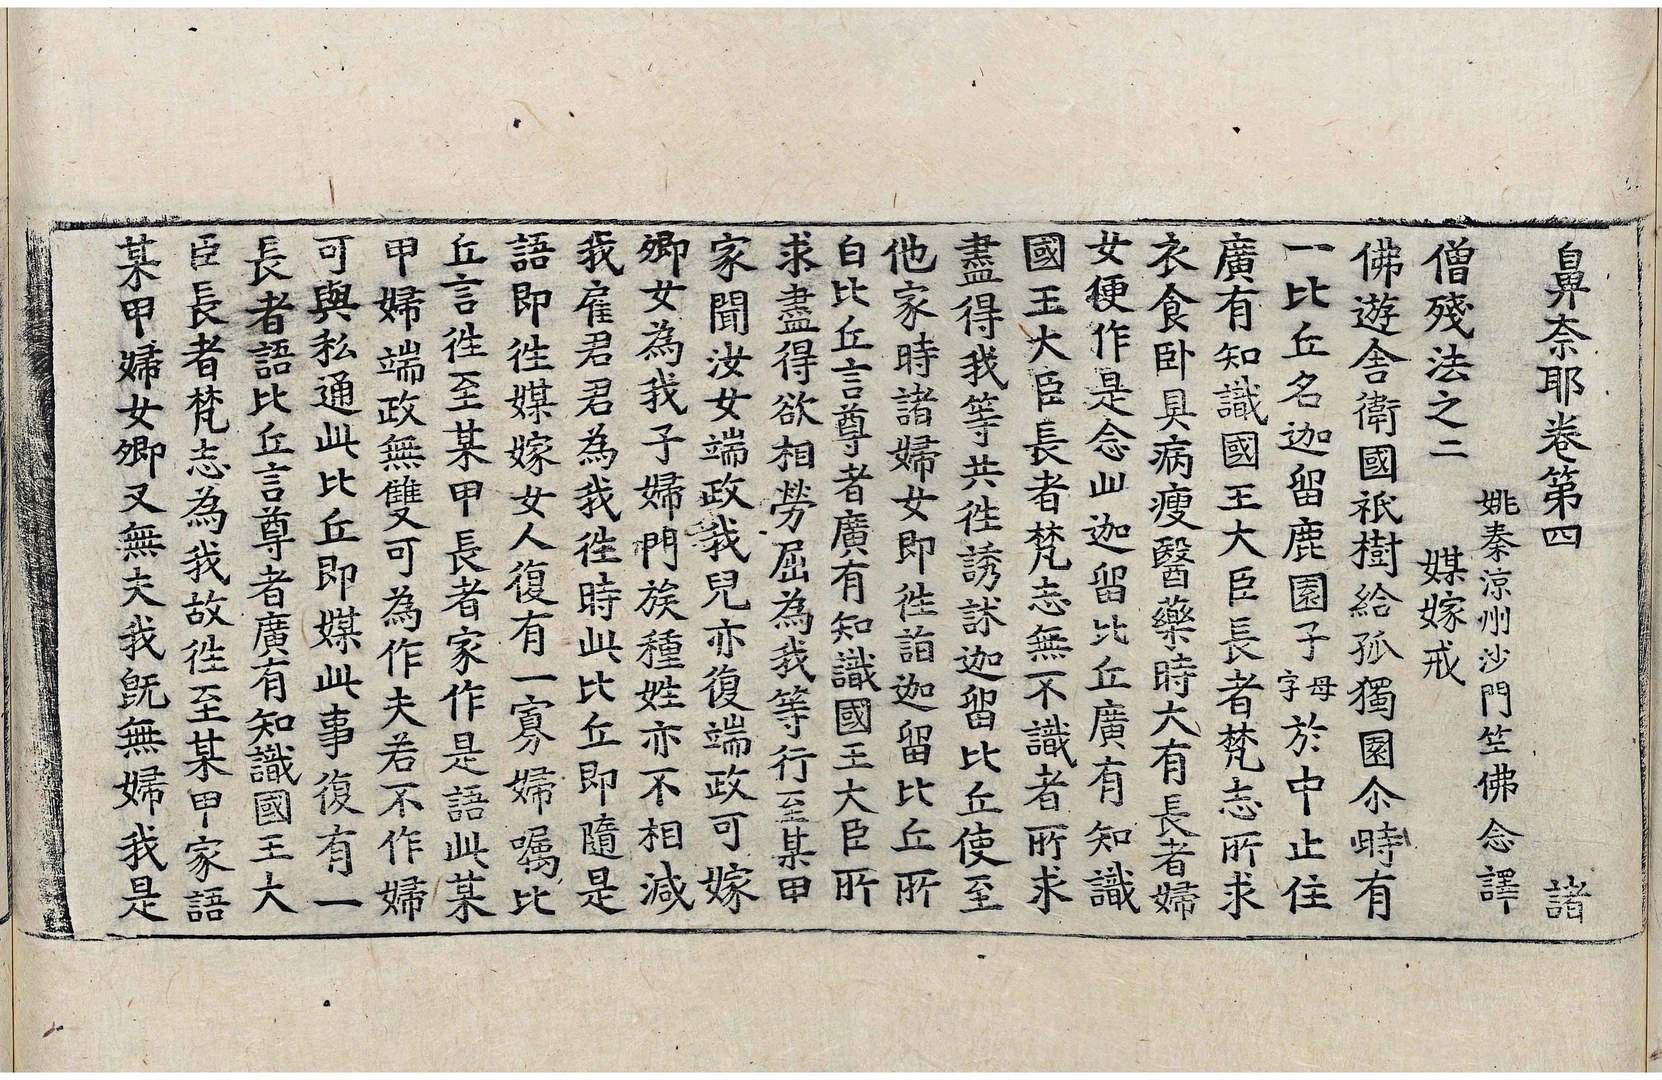 鼻奈耶卷第四　諸
姚秦涼州沙門竺佛念譯
僧殘法之二　媒嫁戒
佛遊舍衛國祇樹給孤獨園尒時有
一比丘名迦留鹿園子母字於中止住
廣有知識國王大臣長者梵志所求
衣食卧具病瘦醫藥時大有長者婦
女便作是念此迦留比丘廣有知識
國王大臣長者梵志無不識者所求
盡得我等共徃誘訹迦留比丘使至
他家時諸婦女即徃詣迦留比丘所
白比丘言尊者廣有知識國王大臣所
求盡得欲相勞屈為我等行至某甲
家聞汝女端政我兒亦復端政可嫁
卿女為我子婦門族種姓亦不相減
我雇君君為我徃時此比丘即隨是
語即徃媒嫁女人復有一寡婦囑比
丘言徃至某甲長者家作是語此某
甲婦端政無雙可為作夫若不作婦
可與私通此比丘即媒此事復有一
長者語比丘言尊者廣有知識國王大
臣長者梵志為我故徃至某甲家語
某甲婦女卿又無夫我旣無婦我是